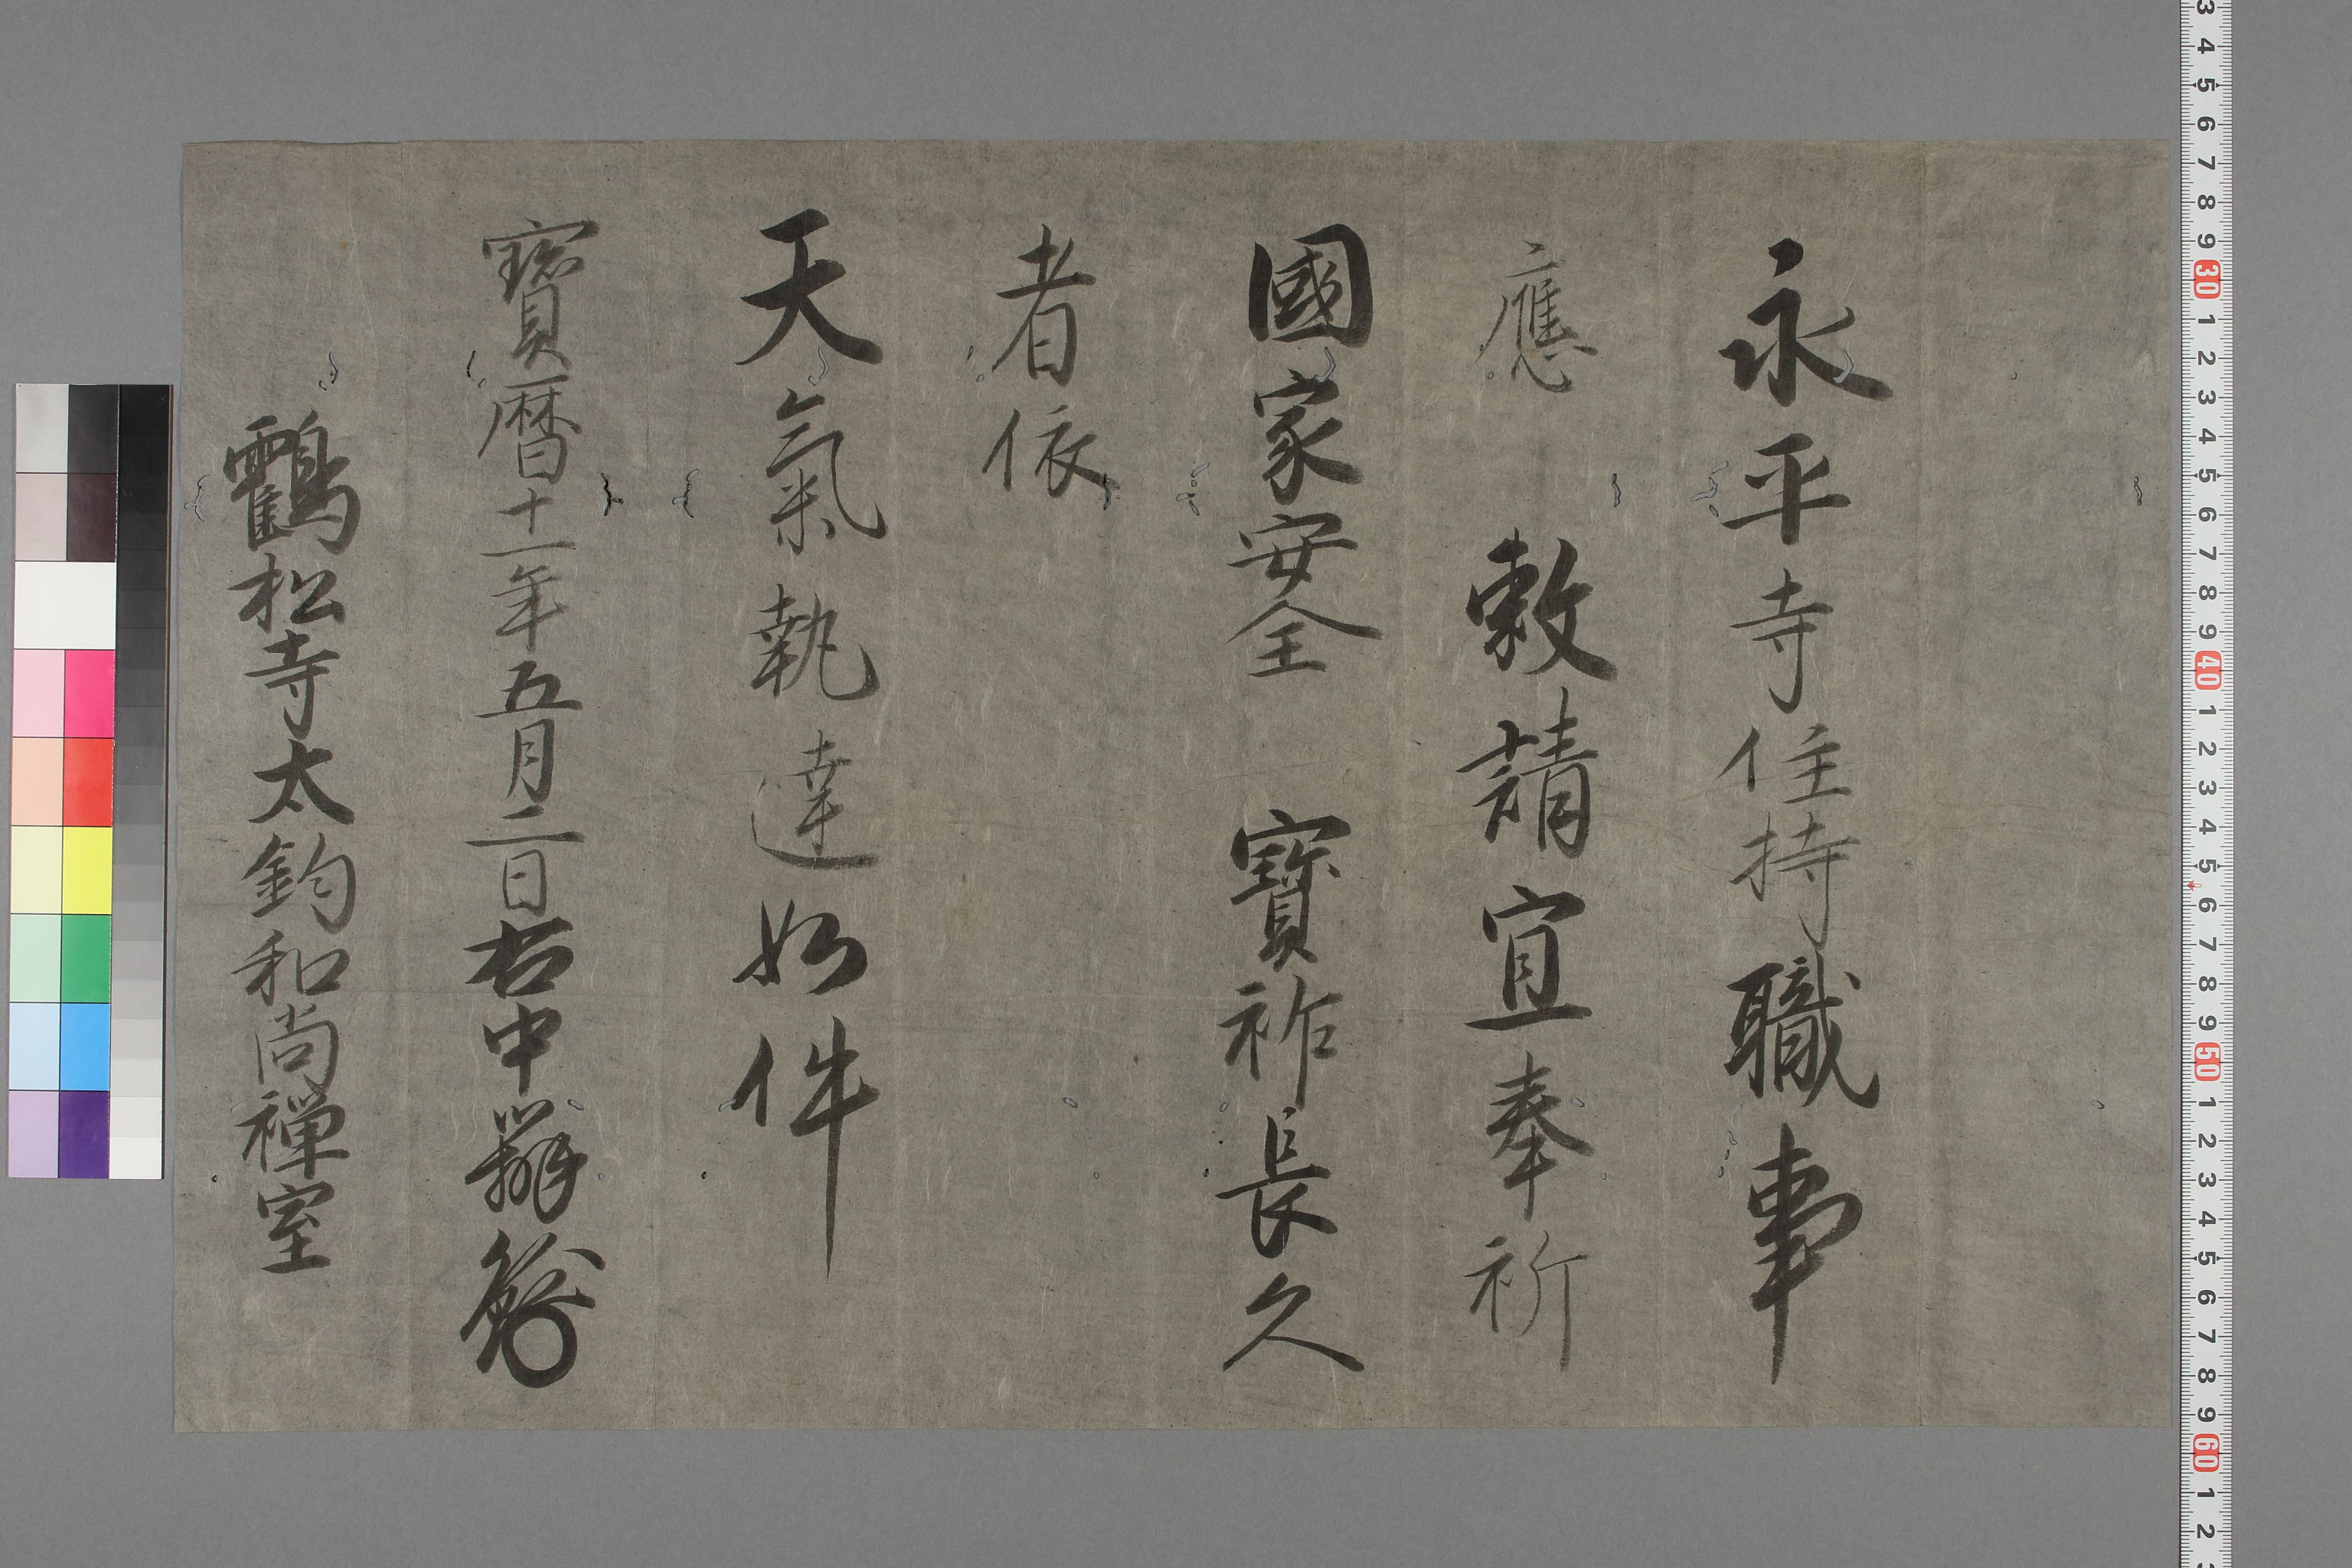 永平寺住持職事
應　敕請宜奉祈
國家安全　寳祚長久
者依
天氣執達如件
寳暦十一年五月二日右中辨
鸖松寺太鈞和尚禅室